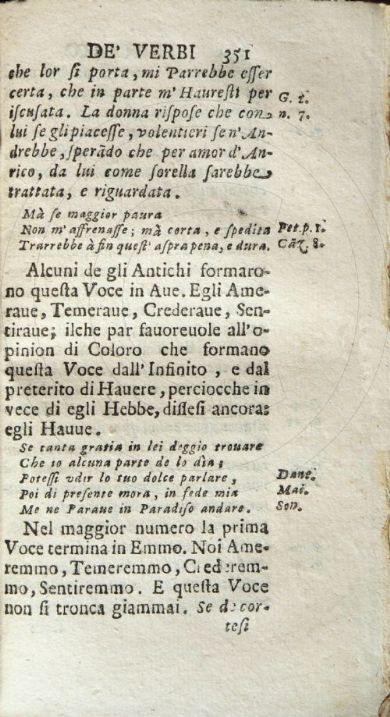 DE' VERBI 351
che lor ſi porta, mi Parrebbe eſſer
certa, che in parte m' Haureſti per
iſcuſata. La donna riſpoſe che con
lui ſe gli piaceſſe, volentieri ſe n' An-
drebbe, ſperãdo che per amor d' An-
rico, da lui come ſorella ſarebbe
trattata, e riguardata.
G. 2.
n. 7.
Mà ſe maggior paura
Non m' affrenaſſe; mà corta, e ſpedita
Trarrebbe à fin queſt' aſpra pena, e dura.
Pet. p. 1.
Cãz. 8.
Alcuni de gli Antichi formaro-
no queſta Voce in Aue. Egli Ame-
raue, Temeraue, Crederaue, Sen-
tiraue; ilche par fauoreuole all'o-
pinion di Coloro che formano
queſta Voce dall' Infinito, e dal
preterito di Hauere, perciocche in
vece di egli Hebbe, diſſeſi ancora:
egli Hauue.
Se tanta gratia in lei deggio trouare
Che io alcuna parte de lo dia;
Poteſſi vdir lo tuo dolce parlare,
Poi di preſente mora, in fede mia
Me ne Paraue in Paradiſo andare.
Dant.
Mai.
Son.
Nel maggior numero la prima
Voce termina in Emmo. Noi Ame-
remmo, Temeremmo, Crederem-
mo, Sentiremmo. E queſta Voce
non ſi tronca giammai. Se decor-
teſi